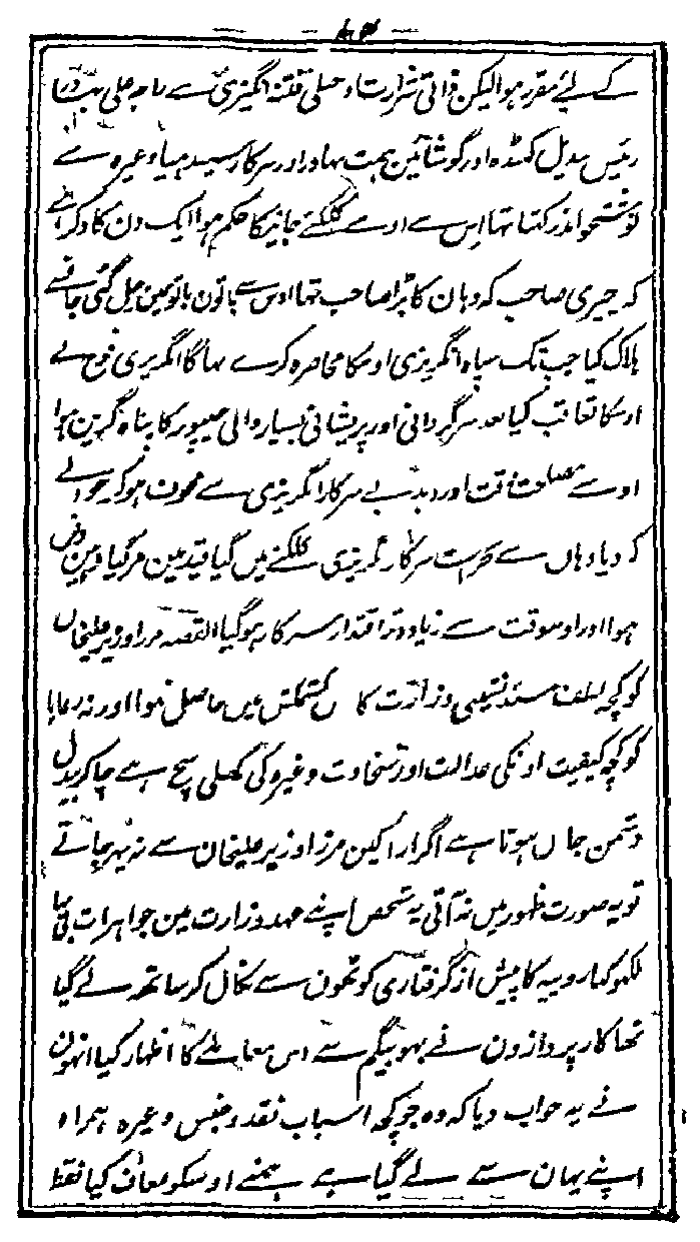 کے لئے مقرر ہوا لیکن ذاتی شرارت و جبلی فتنہ انگیزی سے راجہ علی بہادر
رئیس بندیل کھنڈ اور گوشائین ہمت بہادر اور سرکار سیندہیا وغیرہ سے
نوشتخواندر کہتا تہا اس سے اوسے کلکتے جانیکا حکم ہوا ایک دن کا ذکر ہے
کہ چیری صاحب کہ وہان کا بڑا صاحب تہا اوس سے باتون باتونمین چل گئی جانسے
ہلاک کیا جب تک سپاہ انگریزی اوسکا محاصرہ کرے بہاگا انگریزی فوج نے
اوسکا تعاقب کیا بعد سرگردانی اور پریشانی بسیار والی جیپور کا پناہ گزین ہوا
اوسے مصلحت وقت اور دبدبے سرکار انگریزی سے ہوکر حوالے
کر دیا وہاں سے بحراست سرکار انگریزی کلکتے میں گیا قید مین مر گیا وہین دفن
ہوا اور اوسوقت سے زیادہ تر اقتدار سرکار ہوگیا القصہ مرزا وزیر علیخاں
کو کچھ لطف مسند نشینی وزارت کا کشمکش میں حاصل نہوا اور نہ رعایا
کو کچھ کیفیت اونکی عدالت اور سخاوت وغیرہ کی کھلی سچ ہے چاکر بیدل
دشمن جاں ہوتا ہے اگر اراکین مرزا وزیر علیخان سے نہ پہر جاتے
تو یہ صورت ظہور میں نہ آتی یہ شخص اپنے عہد وزارت مین جواہرات بیش بہا
لکھوکہا روپیہ کا پیش از گرفتاری کوٹھون سے نکال کر ساتھ لے گیا
تھا کارپردازون نے بہو بیگم سے اس معاملے کا اظہار کیا انہون
نے یہ جواب دیا کہ وہ جو کچھ اسباب نقد و جنس وغیرہ ہمراہ
اپنے یہان سے لے گیا ہے ہمنے اوسکو معاف کیا فقط